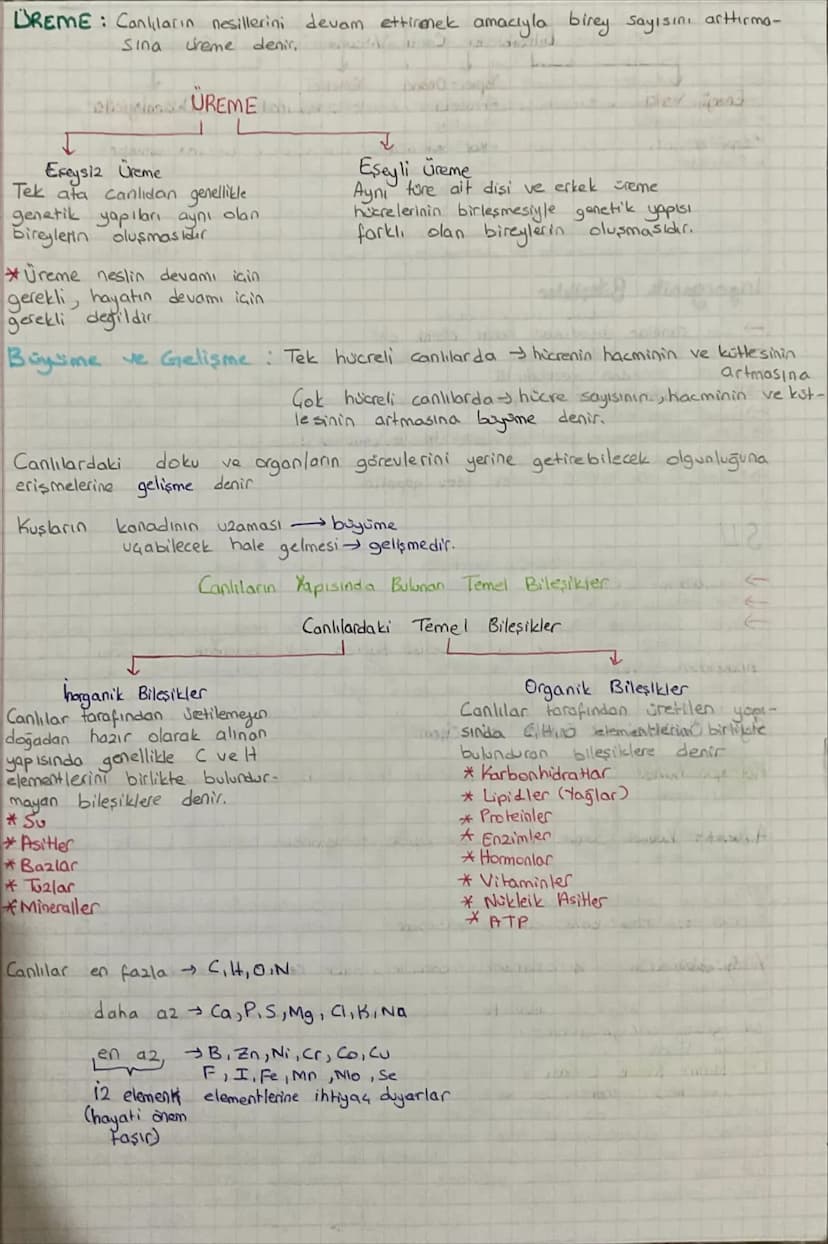 ÜREME : Canlıların nesillerini devam ettirmek amacıyla birey sayısını arttırma-
sına üreme denir.
ÜREME
Eşeysiz Üreme
Tek ata canlıdan genellikle
genetik yapıları aynı olan
bireylerin oluşmasıdır
Eşeyli Üreme
Aynı türe ait dişi ve erkek üreme
hücrelerinin birleşmesiyle genetik yapısı
farklı olan bireylerin oluşmasıdır.
* Üreme neslin devamı için
gerekli, hayatın devamı için
gerekli değildir
Büyüme ve Gelişme : Tek hücreli canlılarda → hücrenin hacminin ve kütlesinin
artmasına
Çok hücreli canlılarda → hücre sayısının, hacminin ve küt-
lesinin artmasına büyüme denir.
Canlılardaki doku ve organların görevlerini yerine getirebilecek olgunluğuna
erişmelerine gelişme denir
Kuşların kanadının uzaması → büyüme
uçabilecek hale gelmesi → gelişmedir.
Canlıların Yapısında Bulunan Temel Bileşikler
Canlılardaki Temel Bileşikler
İnorganik Bileşikler
Canlılar tarafından üetilemeyen
doğadan hazır olarak alınan
yapısında genellikle C ve H
elementlerini birlikte bulundur-
mayan bileşiklere denir.
* Su
* Asitler
* Bazlar
* Tuzlar
* Mineraller
Organik Bileşikler
Canlılar tarafından üretilen yapı-
sında C,H,O elementlerini birlikte
bulunduran bileşiklere denir
* Karbonhidratlar
* Lipidler (Yağlar)
* Proteinler
* Enzimler
* Hormonlar
* Vitaminler
* Nükleik Asitler
* ATP
Canlılar en fazla → C,H,O,N
daha az → Ca,P,S,Mg,Cl,K,Na
en az, → B,Zn,Ni,Cr,Co,Cu
F,I,Fe,Mn,Mo,Se
iz element elementlerine ihtiyaç duyarlar
(hayati önem
taşır)